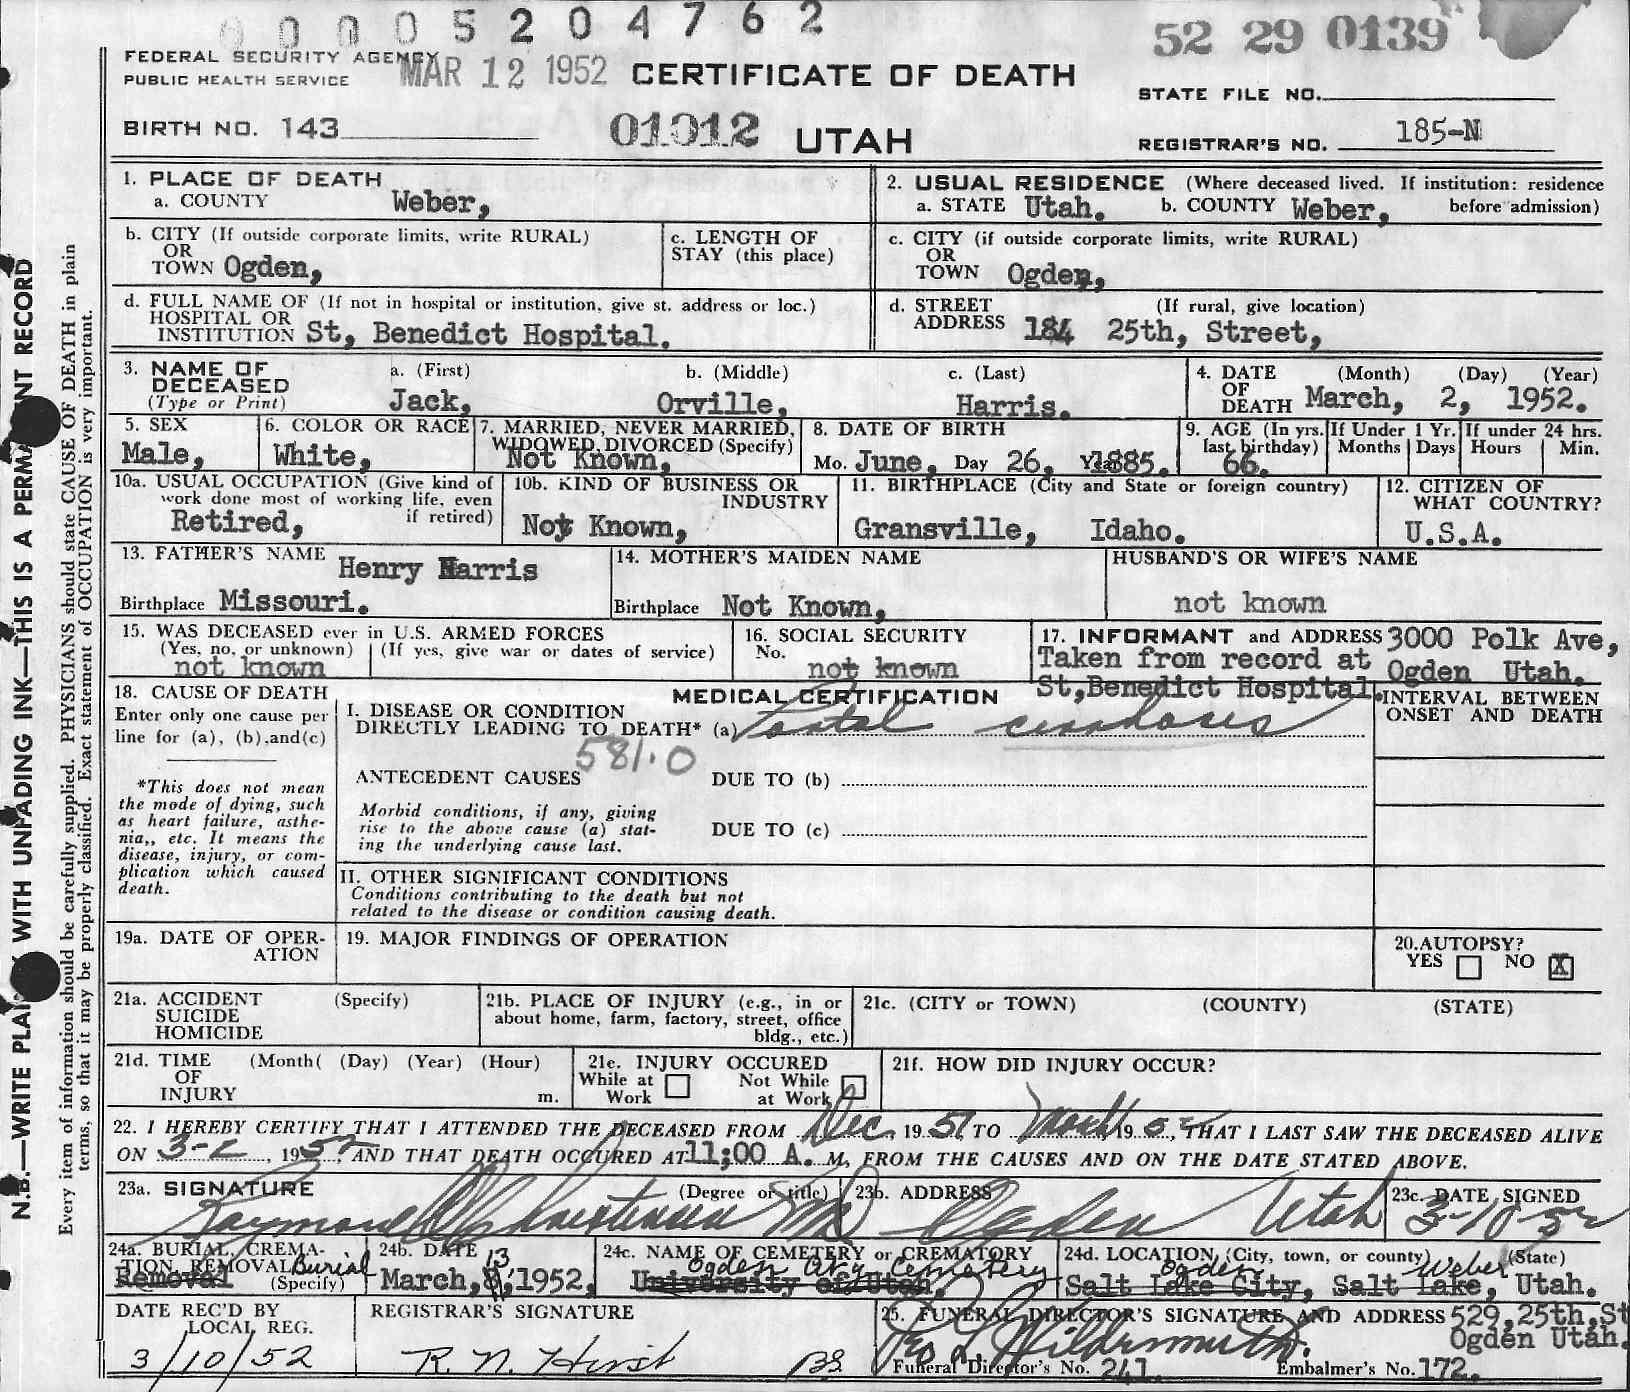 00005204762
52 29 0139
FEDERAL SECURITY AGENCY
PUBLIC HEALTH SERVICE
MAR 12 1952
CERTIFICATE OF DEATH
STATE FILE NO.
BIRTH NO. 143
01012 UTAH
REGISTRAR'S NO. 185-N
1. PLACE OF DEATH
a. COUNTY Weber,
2. USUAL RESIDENCE (Where deceased lived. If institution: residence before admission)
a. STATE Utah. b. COUNTY Weber,
b. CITY (If outside corporate limits, write RURAL)
OR
TOWN Ogden,
c. LENGTH OF
STAY (this place)
c. CITY (if outside corporate limits, write RURAL)
OR
TOWN Ogden,
d. FULL NAME OF (If not in hospital or institution, give st. address or loc.)
HOSPITAL OR
INSTITUTION St, Benedict Hospital.
d. STREET (If rural, give location)
ADDRESS 184 25th, Street,
3. NAME OF
DECEASED
(Type or Print)
a. (First) b. (Middle) c. (Last)
Jack, Orville, Harris.
4. DATE (Month) (Day) (Year)
OF
DEATH March, 2, 1952.
5. SEX
Male,
6. COLOR OR RACE
White,
7. MARRIED, NEVER MARRIED,
WIDOWED, DIVORCED (Specify)
Not Known,
8. DATE OF BIRTH
Mo. June, Day 26, Year 1885.
9. AGE (In yrs.
last birthday)
66.
If Under 1 Yr.
Months Days
If under 24 hrs.
Hours Min.
10a. USUAL OCCUPATION (Give kind of
work done most of working life, even
if retired)
Retired,
10b. KIND OF BUSINESS OR
INDUSTRY
Not Known,
11. BIRTHPLACE (City and State or foreign country)
Gransville, Idaho.
12. CITIZEN OF
WHAT COUNTRY?
U.S.A.
13. FATHER'S NAME Henry Harris
Birthplace Missouri.
14. MOTHER'S MAIDEN NAME
Birthplace Not Known,
HUSBAND'S OR WIFE'S NAME
not known
15. WAS DECEASED ever in U.S. ARMED FORCES
(Yes, no, or unknown) (If yes, give war or dates of service)
not known
16. SOCIAL SECURITY
No.
not known
17. INFORMANT and ADDRESS 3000 Polk Ave,
Taken from record at Ogden Utah.
St,Benedict Hospital.
18. CAUSE OF DEATH
Enter only one cause per
line for (a), (b),and(c)
*This does not mean
the mode of dying, such
as heart failure, asthe-
nia,, etc. It means the
disease, injury, or com-
plication which caused
death.
MEDICAL CERTIFICATION
I. DISEASE OR CONDITION
DIRECTLY LEADING TO DEATH* (a) Portal cirrhosis
581.0
ANTECEDENT CAUSES
DUE TO (b)
Morbid conditions, if any, giving
rise to the above cause (a) stat-
ing the underlying cause last.
DUE TO (c)
II. OTHER SIGNIFICANT CONDITIONS
Conditions contributing to the death but not
related to the disease or condition causing death.
INTERVAL BETWEEN
ONSET AND DEATH
19a. DATE OF OPER-
ATION
19. MAJOR FINDINGS OF OPERATION
20. AUTOPSY?
YES NO X
21a. ACCIDENT (Specify)
SUICIDE
HOMICIDE
21b. PLACE OF INJURY (e.g., in or
about home, farm, factory, street, office
bldg., etc.)
21c. (CITY or TOWN) (COUNTY) (STATE)
21d. TIME (Month( (Day) (Year) (Hour)
OF
INJURY m.
21e. INJURY OCCURED
While at Work
Not While at Work
21f. HOW DID INJURY OCCUR?
22. I HEREBY CERTIFY THAT I ATTENDED THE DECEASED FROM Dec 1951, TO March 1952, THAT I LAST SAW THE DECEASED ALIVE
ON 3-2, 1952, AND THAT DEATH OCCURED AT 11;00 A. M, FROM THE CAUSES AND ON THE DATE STATED ABOVE.
23a. SIGNATURE (Degree or title)
Raymond Christensen MD
23b. ADDRESS
Ogden Utah
23c. DATE SIGNED
3-10-52
24a. BURIAL, CREMA-
TION, REMOVAL Burial
Removal (Specify)
24b. DATE 13
March, 8, 1952,
24c. NAME OF CEMETERY or CREMATORY
Ogden City Cemetery
University of Utah,
24d. LOCATION (City, town, or county) (State)
Ogden Weber
Salt Lake City, Salt Lake, Utah.
DATE REC'D BY
LOCAL REG.
3/10/52
REGISTRAR'S SIGNATURE
R. N. Hirst BS
25. FUNERAL DIRECTOR'S SIGNATURE AND ADDRESS 529, 25th, St
Ogden Utah.
Geo L Wildermuth.
Funeral Director's No. 241. Embalmer's No. 172.
N.B.—WRITE PLAINLY WITH UNFADING INK—THIS IS A PERMANENT RECORD
Every item of information should be carefully supplied. PHYSICIANS should state CAUSE OF DEATH in plain
terms, so that it may be properly classified. Exact statement of OCCUPATION is very important.